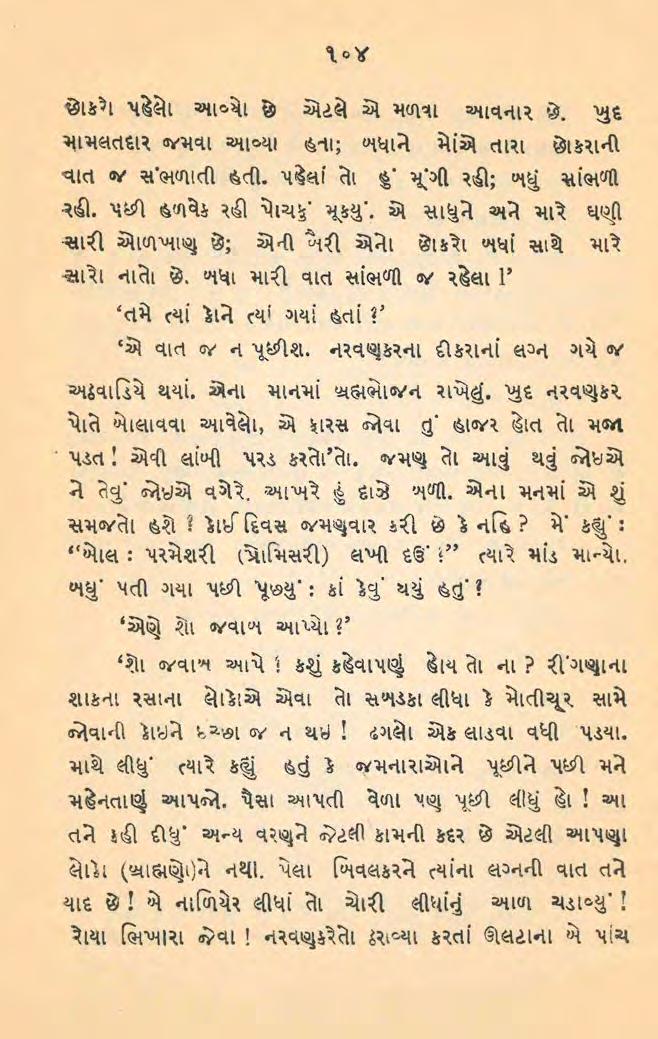 ૧૦૪
છોકરો પહેલો આવ્યો છે એટલે એ મળવા આવનાર છે. ખુદ
મામલતદાર જમવા આવ્યા હતા; બધાને મેંએ તારા છોકરાની
વાત જ સંભળાતી હતી. પહેલાં તો હું મૂંગી રહી; બધું સાંભળી
રહી. પછી હળવેક રહી પોચકું મૂકયું. એ સાધુને અને મારે ઘણી
સારી ઓળખાણ છે; એની બૈરી એનો છોકરો બધાં સાથે મારે
સારો નાતો છે. બધા મારી વાત સાંભળી જ રહેલા !’
‘તમે ત્યાં કોને ત્યાં ગયાં હતાં ?’
‘એ વાત જ ન પૂછીશ. નરવણકરના દીકરાનાં લગ્ન ગયે જ
અઠવાડિયે થયાં. એના માનમાં બ્રહ્મભોજન રાખેલું. ખુદ નરવણકર
પોતે બોલાવવા આવેલો, એ ફારસ જોવા તું હાજર હોત તો મજા
પડત ! એવી લાંબી પરડ કરતો’તો. જમણ તો આવું થવું જોઇએ
ને તેવું જોઇએ વગેરે. આખરે હું દાઝે બળી. એના મનમાં એ શું
સમજતો હશે ? કોઈ દિવસ જમણવાર કરી છે કે નહિ ? મેં કહ્યું :
“બોલ : પરમેશરી (પ્રોમિસરી) લખી દઉં !” ત્યારે માંડ માન્યો.
બધું પતી ગયા પછી પૂછયું : કાં કેવું થયું હતું ?
‘એણે શો જવાબ આપ્યો ?’
‘શો જવાબ આપે ! કશું કહેવાપણું હોય તો ના ? રીંગણાના
શાકના રસાના લોકોએ એવા તો સબડકા લીધા કે મોતીચૂર સામે
જોવાની કોઇને ઇચ્છા જ ન થઇ ! ઢગલો એક લાડવા વધી પડયા.
માથે લીધું ત્યારે કહ્યું હતું કે જમનારાઓને પૂછીને પછી મને
મહેનતાણું આપજો. પૈસા આપતી વેળા પણ પૂછી લીધું હો ! આ
તને કહી દીધું અન્ય વરણને જેટલી કામની કદર છે એટલી આપણા
લોકો (બ્રાહ્મણો)ને નથી. પેલા ખિવલકરને ત્યાંના લગ્નની વાત તને
યાદ છે ! બે નાળિયેર લીધાં તો ચોરી લીધાંનું આળ ચડાવ્યું !
રોયા ભિખારા જેવા ! નરવણકરેતો ઠરાવ્યા કરતાં ઊલટાના બે પાંચ